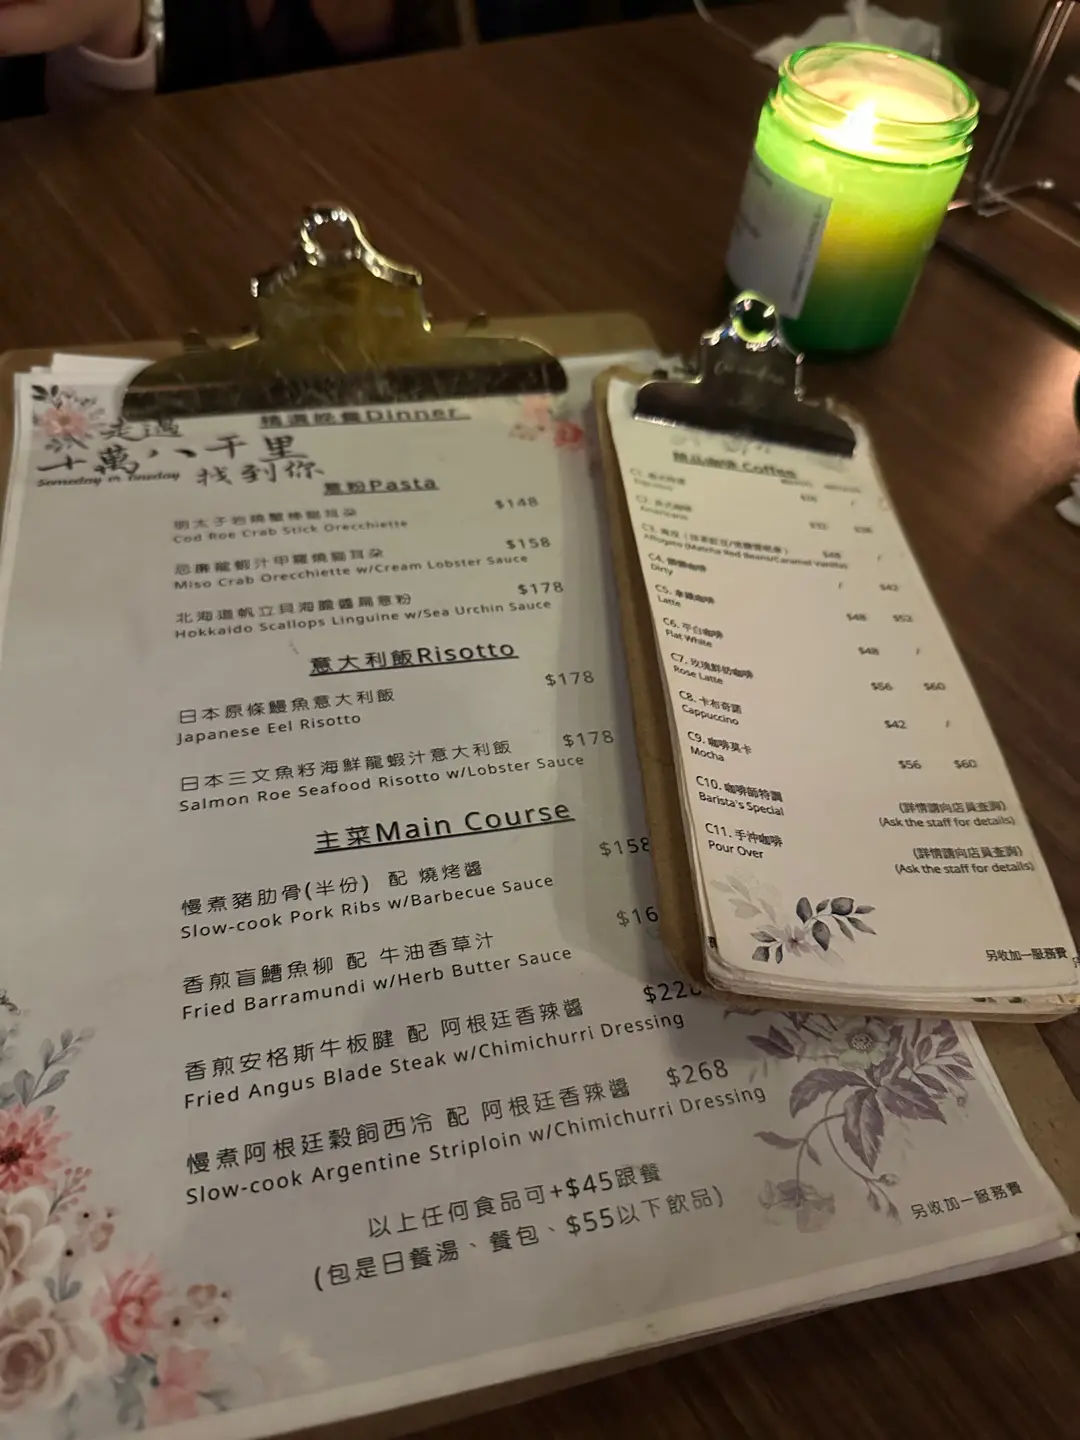 精選晚餐Dinner
走過
十萬八千里
找到你
Someday or Oneday
意粉Pasta
明太子岩燒蟹棒貓耳朵 $148
Cod Roe Crab Stick Orecchiette
忌廉龍蝦汁甲羅燒貓耳朵 $158
Miso Crab Orecchiette w/Cream Lobster Sauce
北海道帆立貝海膽醬扁意粉 $178
Hokkaido Scallops Linguine w/Sea Urchin Sauce
意大利飯Risotto
日本原條鰻魚意大利飯 $178
Japanese Eel Risotto
日本三文魚籽海鮮龍蝦汁意大利飯 $178
Salmon Roe Seafood Risotto w/Lobster Sauce
主菜Main Course
慢煮豬肋骨(半份) 配 燒烤醬 $158
Slow-cook Pork Ribs w/Barbecue Sauce
香煎盲鰽魚柳 配 牛油香草汁 $16
Fried Barramundi w/Herb Butter Sauce
香煎安格斯牛板腱 配 阿根廷香辣醬 $22
Fried Angus Blade Steak w/Chimichurri Dressing
慢煮阿根廷穀飼西冷 配 阿根廷香辣醬 $268
Slow-cook Argentine Striploin w/Chimichurri Dressing
以上任何食品可+$45跟餐
(包是日餐湯、餐包、$55以下飲品)
另收加一服務費
精品咖啡 Coffee
C1.
Espresso
C2.
Americano $32 $36
C3.
Affogato (Matcha Red Beans/Caramel Vanilla) $48 /
C4. 髒髒咖啡 / $42
Dirty
C5. 拿鐵咖啡 $48 $52
Latte
C6. 平白咖啡 $48 /
Flat White
C7. 玫瑰鮮奶咖啡 $56 $60
Rose Latte
C8. 卡布奇諾 $42 /
Cappuccino
C9. 咖啡莫卡 $56 $60
Mocha
C10. 咖啡師特調 (詳情請向店員查詢)
Barista's Special (Ask the staff for details)
C11. 手沖咖啡 (詳情請向店員查詢)
Pour Over (Ask the staff for details)
另收加一服務費